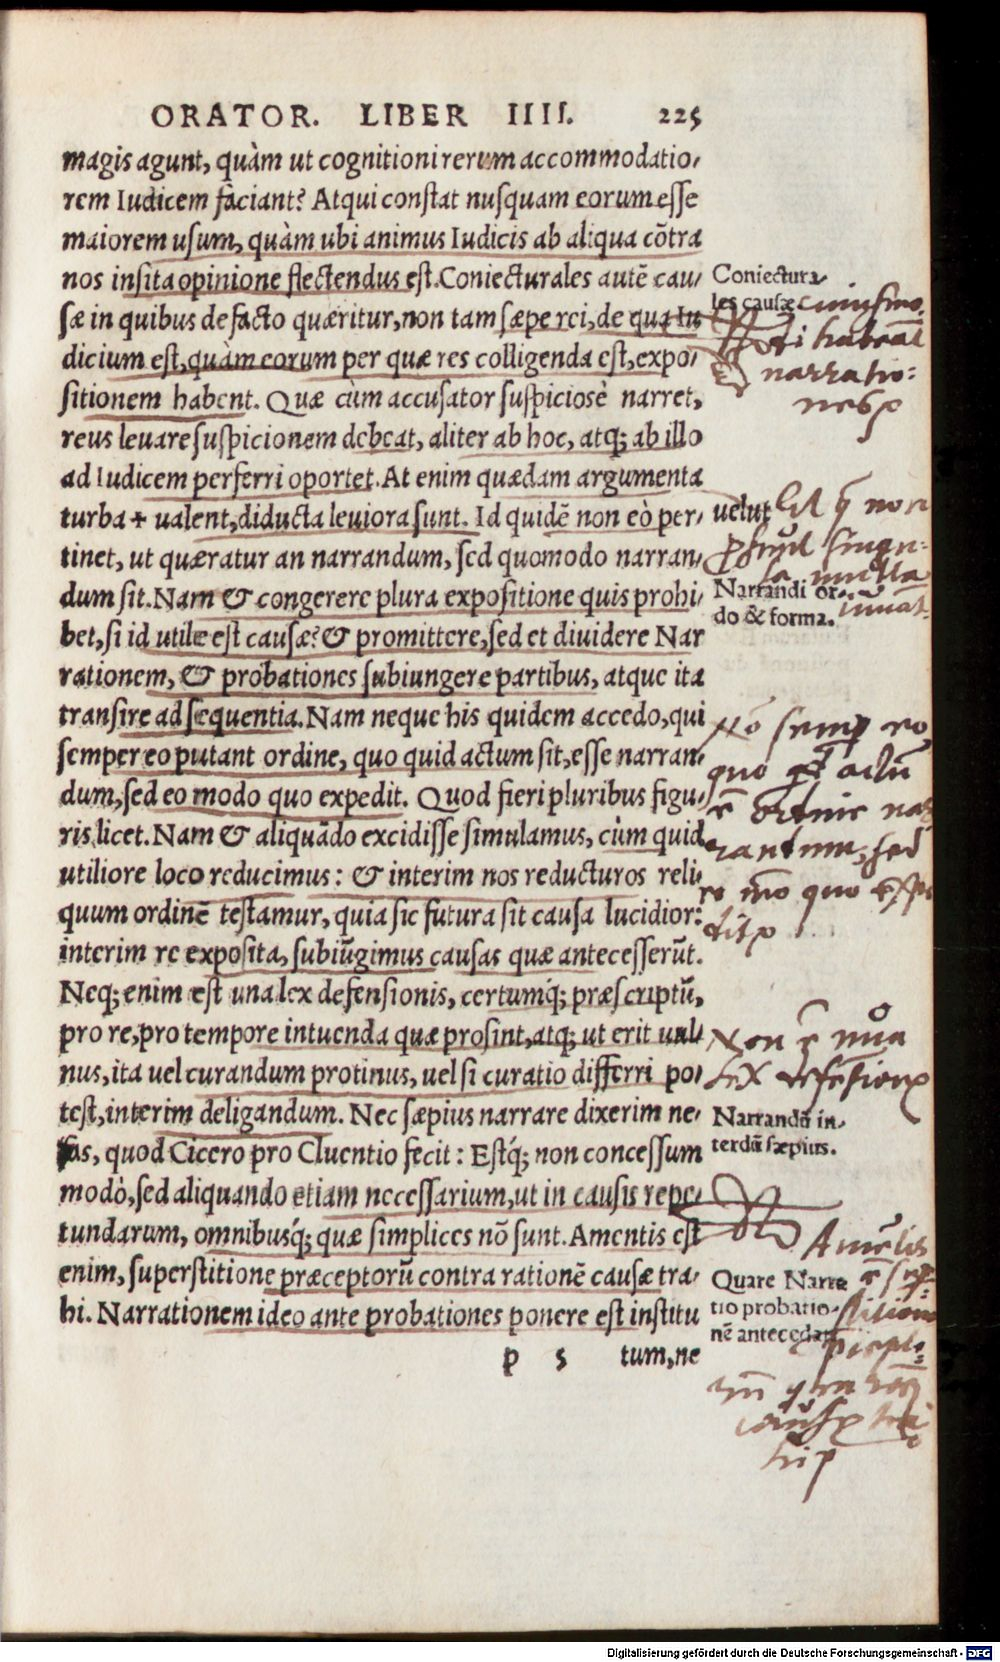 ORATOR. LIBER IIII. 225
magis agunt, quàm ut cognitioni rerum accommodatio,
rem Iudicem faciant? Atqui constat nusquam eorum esse
maiorem usum, quàm ubi animus Iudicis ab aliqua cõtra
nos insita opinione flectendus est. Coniecturales autẽ cau,
sæ in quibus de facto quæritur, non tam sæpe rei, de qua Iu
dicium est, quàm eorum per quæ res colligenda est, expo,
sitionem habent. Quæ cùm accusator suspiciosè narret,
reus leuare suspicionem debeat, aliter ab hoc, atq; ab illo
ad Iudicem perferri oportet. At enim quædam argumenta
turba + ualent, diducta leuiora sunt. Id quidẽ non eò per,
tinet, ut quæratur an narrandum, sed quomodo narran,
dum sit. Nam & congerere plura expositione quis prohi,
bet, si id utile est causæ? & promittere, sed et diuidere Nar
rationem, & probationes subiungere partibus, atque ita
transire ad sequentia. Nam neque his quidem accedo, qui
semper eo putant ordine, quo quid actum sit, esse narran,
dum, sed eo modo quo expedit. Quod fieri pluribus figu,
ris licet. Nam & aliquãdo excidisse simulamus, cùm quid
utiliore loco reducimus: & interim nos reducturos reli,
quum ordinẽ testamur, quia sic futura sit causa lucidior:
interim re exposita, subiũgimus causas quæ antecesserũt.
Neq; enim est una lex defensionis, certumq́; præscriptũ,
pro re, pro tempore intuenda quæ prosint, atq; ut erit uul,
nus, ita uel curandum protinus, uel si curatio differri po,
test, interim deligandum. Nec sæpius narrare dixerim ne,
fas, quod Cicero pro Cluentio fecit: Estq́; non concessum
modò, sed aliquando etiam necessarium, ut in causis repe,
tundarum, omnibusq́; quæ simplices nõ sunt. Amentis est
enim, superstitione præceptorũ contra rationẽ causæ tra,
hi. Narrationem ideo ante probationes ponere est institu
p 5 tum, ne
Coniectura,
les causæ
cuiusmo
di habeāt
narratio:
nes
uelut
non
singu:
la multa
Narrandi or,
do & forma.
iuuāt
Nō semp eo
quo qd actũ
ē ordine nar
randum, sed
eo mō quo expe
dit
Non ē una
lex defēsionis
Narrandũ in,
terdũ sæpius.
Amētis
Quare Narra
tio probatio,
nẽ antecedat.